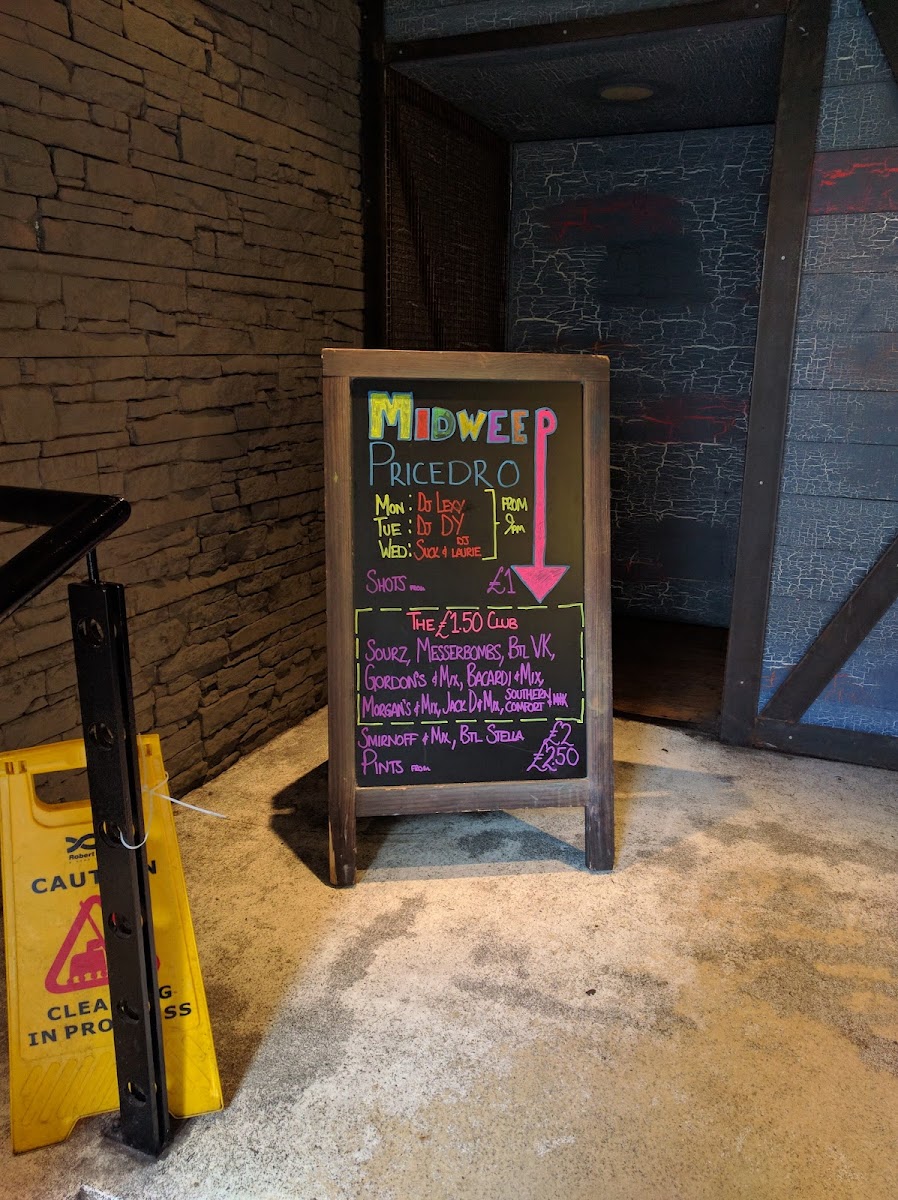 MIDWEEP
PRICEDRO
MON: DJ LEXY
TUE: DJ DY
WED: SUCK & LAURIE DJ
FROM
9PM
SHOTS FROM £1
THE £1.50 CLUB
SOURZ, MESSERBOMBS, BTL VK,
GORDON'S & MIX, BACARDI & MIX,
MORGAN'S & MIX, JACK D & MIX, SOUTHERN COMFORT & MIX
SMIRNOFF & MIX, BTL STELLA £2
PINTS FROM £2.50
Robert
CAUTION
CLEANING
IN PROGRESS